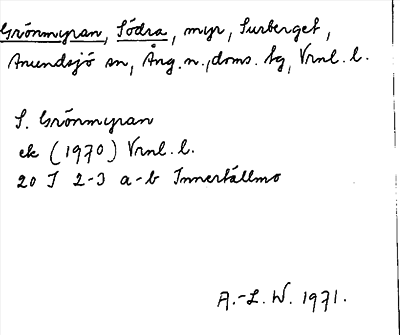 Grönmyran, Södra, myr, Surberget,
Anundsjö sn, Ång.n., doms. tg, Vrnl. l.
S. Grönmyran
ek (1970) Vrnl. l.
20 I 2-3 a-b Innertällmo
A.-L. W. 1971.